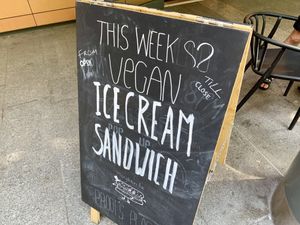 THIS WEEK
VEGAN
FROM
OPEN
TILL
CLOSE
ICECREAM
POP UP
SANDWICH